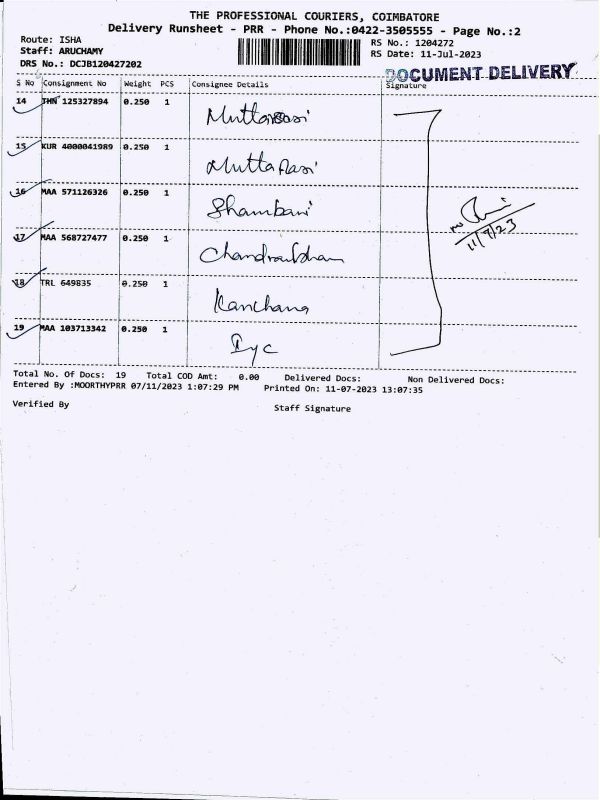 THE PROFESSIONAL COURIERS, COIMBATORE
Delivery Runsheet - PRR - Phone No.:0422-3505555 - Page No.:2
Route: ISHA
RS No.: 1204272
Staff: ARUCHAMY
RS Date: 11-Jul-2023
DRS No.: DCJB120427202
DOCUMENT DELIVERY
S No Consignment No Weight PCS Consignee Details Signature
14 THN 125327894 0.250 1 Muttarasi
15 KUR 4000041989 0.250 1 Muttarasi
16 MAA 571126326 0.250 1 Shambavi
17 MAA 568727477 0.250 1
18 TRL 649835 0.250 1 Kanchana
19 MAA 103713342 0.250 1 Iyc
11/7/23
Total No. Of Docs: 19 Total COD Amt: 0.00 Delivered Docs: Non Delivered Docs:
Entered By :MOORTHYPRR 07/11/2023 1:07:29 PM Printed On: 11-07-2023 13:07:35
Verified By Staff Signature